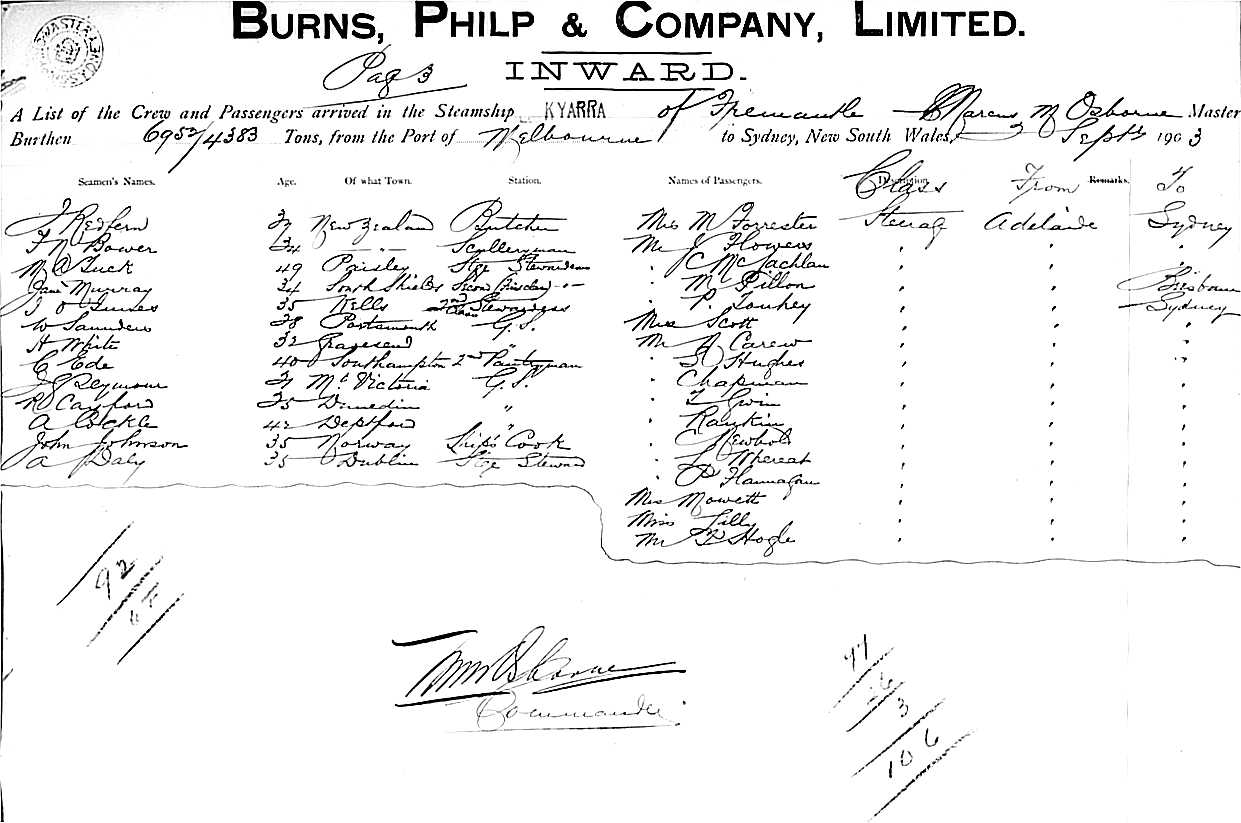 BURNS, PHILP & COMPANY, LIMITED.
Page 3
INWARD.
A List of the Crew and Passengers arrived in the Steamship KYARRA of Fremantle Marcus M Osborne Master
Burthen 6952/4383 Tons, from the Port of Melbourne to Sydney, New South Wales, 3 Septr 1903
Seamen's Names. Age. Of what Town. Station. Names of Passengers. Description. Class From Remarks. To
J Redfern New Zealand Butcher Mrs M Forrester Steerage Adelaide Sydney
F N Bower 34 —"— Sculleryman Mr J Flowers " " "
Tuck 49 Paisley Stge Stewardess " C McLachlan " " "
Jane Murray 34 South Shields —"— " M Dillon " " Brisbane
35 Wells 2nd Class Stewardess " P. " " Sydney
W Saunders 38 Portsmouth G.S. Miss Scott " " "
H White 32 Gravesend " Mr A Carew " " "
C Ede 40 Southampton 2nd Pantryman " S Hughes " " "
J Seymour Mc Victoria G.S. " Chapman " " "
R Cayford 35 Dunedin " " T Gwin " " "
A Cockle 42 Deptford " " Rankin " " "
John Johnson 35 Norway Ship's Cook " C Newbold " " "
A Daly 35 Dublin Stge Steward " L Whereat " " "
" P Flannagan " " "
Mrs Mowett " " "
Miss Lilly " " "
Mr Hogle " " "
92
77
26
3
106
Commander.